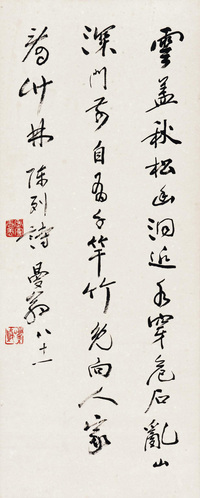 雲蓋秋松幽洞近水穿危石亂山
深門前自有千竿竹免向人家
看竹林 陳列詩 曼翁八十一